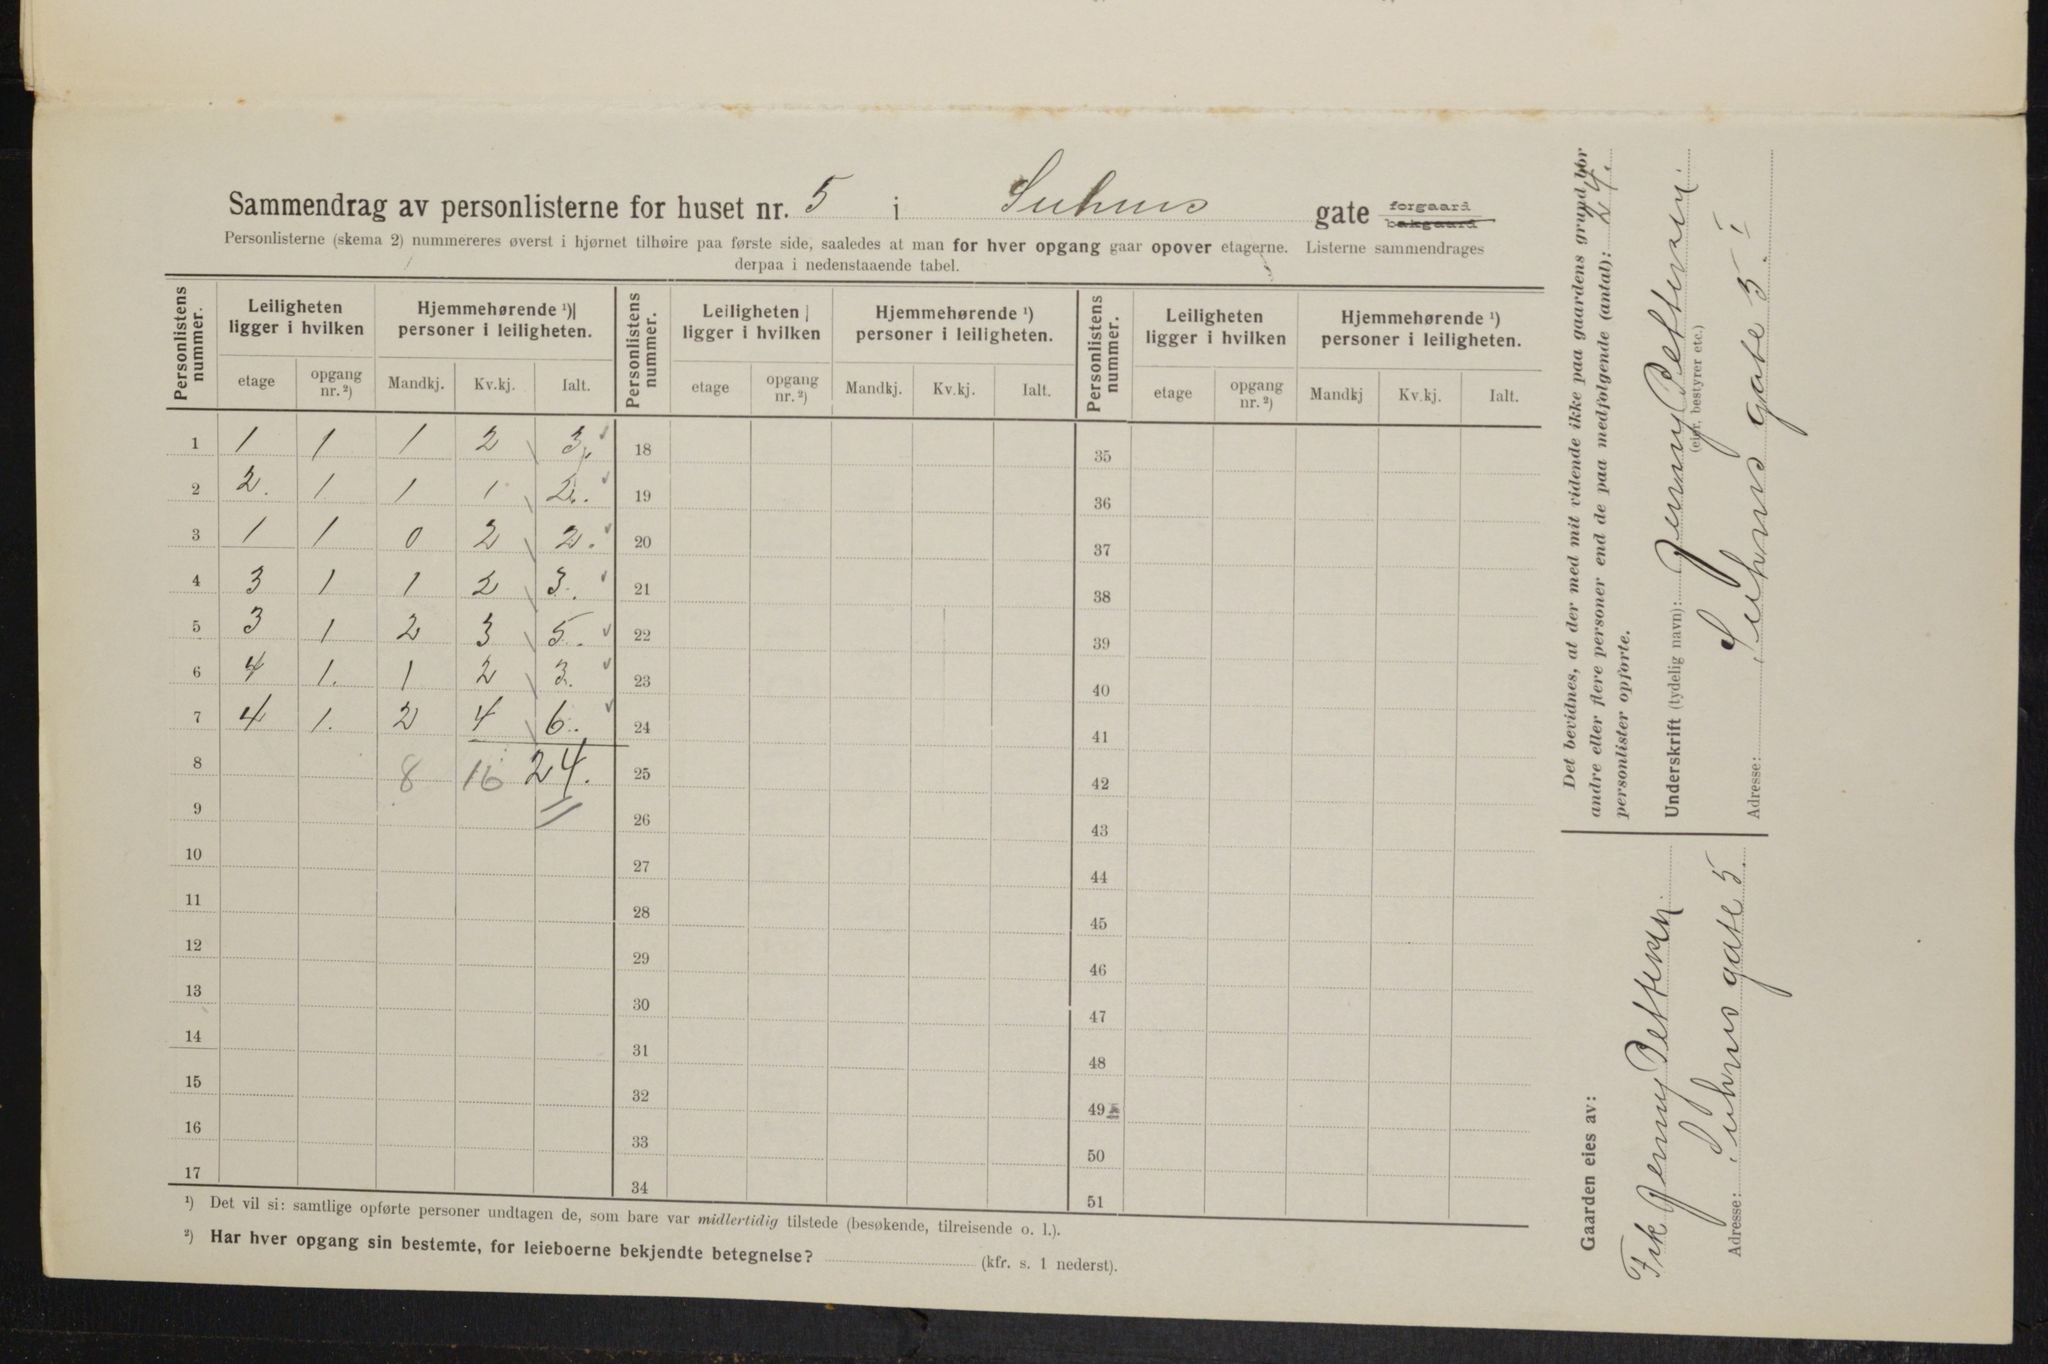 Sammendrag av personlisterne for huset nr. 5 i Suhms gate forgaard bakgaard
Personlisterne (skema 2) nummereres øverst i hjørnet tilhøire paa første side, saaledes at man for hver opgang gaar opover etagerne. Listerne sammendrages
derpaa i nedenstaaende tabel.
Personlistens nummer. Leiligheten ligger i hvilken Hjemmehørende ¹) personer i leiligheten. Personlistens nummer. Leiligheten ligger i hvilken Hjemmehørende ¹) personer i leiligheten. Personlistens nummer. Leiligheten ligger i hvilken Hjemmehørende ¹) personer i leiligheten.
etage opgang nr. ²) Mandkj. Kv.kj. Ialt. etage opgang nr. ²) Mandkj. Kv.kj. Ialt. etage opgang nr. ²) Mandkj Kv.kj. Ialt.
1 1 1 1 2 3. 18 35
2 2. 1 1 1 2. 19 36
3 1 1 0 2 2. 20 37
4 3 1 1 2 3. 21 38
5 3 1 2 3 5. 22 39
6 4 1. 1 2 3. 23 40
7 4 1. 2 4 6. 24 41
8 8 16 24. 25 42
9 26 43
10 27 44
11 28 45
12 29 46
13 30 47
14 31 48
15 32 49
16 33 50
17 34 51
¹) Det vil si: samtlige opførte personer undtagen de, som bare var midlertidig tilstede (besøkende, tilreisende o. l.).
²) Har hver opgang sin bestemte, for leieboerne bekjendte betegnelse? (kfr. s. 1 nederst).
Det bevidnes, at der med mit vidende ikke paa gaardens grund bor
andre eller flere personer end de paa medfølgende (antal): 24.
personlister opførte.
Underskrift (tydelig navn): Jenny Pettersen.
(eier, bestyrer etc.)
Adresse: Suhms gate 5. I
Gaarden eies av:
Frk Jenny Pettersen.
Adresse: Suhms gate 5.